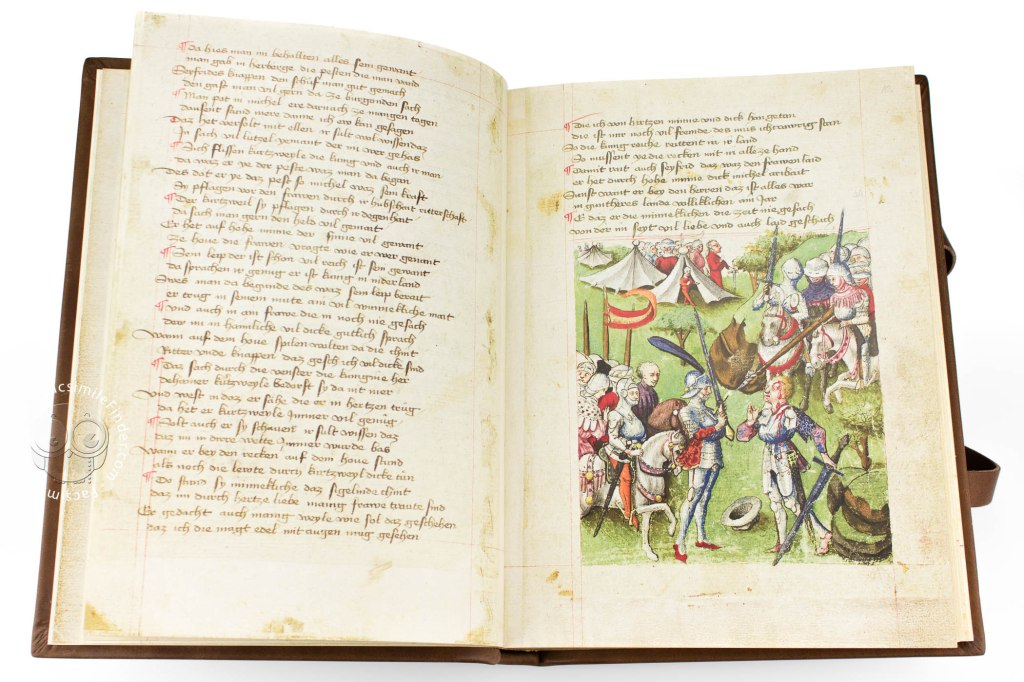 da hies man im behallten alles sein gewant
man gab in herberge die pesten die man vand
Seyfrides knappen den schuf man gut gemach
den gast man vil gern da ze burgonden sach
Man pat in michel ere darnach ze mangen tagen
dausent stund mere danne ich ew kan gesagen
Daz het versolt mit ellen ir sult wol wissen daz
In sach vil lutzel yemant der im wer gehas
Sich flissen kurtzweyle die kunig und auch ir man
da waz er ye der peste waz man da began
Des dot er ye daz pest so michel waz sein kraft
So pflagen vor den frawen durch ir hubschait ritterschaft
Der kurtzweil sy pflagen durch ir degenhait
da sach man gern den held vil gemait
Er het auf hohe minne der sinne vil gewant
Ze houe die frawen vragte wie er wer genant
Sein leip der ist schon vil reich ist sein gewant
da sprachen ir genug er ist kunig in niderland
Swes man da begunde des waz sein leip berait
er trug in seinem mute am vil minnekliche mait
und auch in am frawe die in noch nie gesach
der im in haimliche vil dicke gutlich sprach
Wann auf dem houe spilen wolten da die chint
Ritter unde knappen daz gesch ich vil dicke sind
Daz sach durch die venster die kunginne her
dehainer kurtzweyle bedorft sy da nit mer
Und west in daz er sahe die er in hertzen trug
da het er kurtzweyle Immer vil genug
Solt auch er sy schawen ir sult wissen daz
daz im in dirre welte immer wurde bas
Wann er bey den recken auf dem houe stund
als noch die lewte durch kurtzweyl dicke tun
De stund sy minnekliche daz sigelinde chint
daz im durch hertze liebe manig frawe traute sind
Er gedacht auch manig weyle wie sol daz geschehen
daz ich die magt edel mit augen mug gesehen
Die ich von hertzen minne und dick han getan
die ist mir noch vil fremde des mus ich trawrig stan
So die kung reiche reittent in ir land
So mussent ye die recken mit in alle ze hand
Damit rait auch seyfrid daz waz den frawen laid
er het durch hohe minne dick michel arbait
Sunst want er bey den herren daz ist alles war
in guntheres lande volliklichen am Jar
E daz er die minneklichen die zeit nie gesach
von der im seyt vil liebe und auch laid geschach
facsimilefinder.com